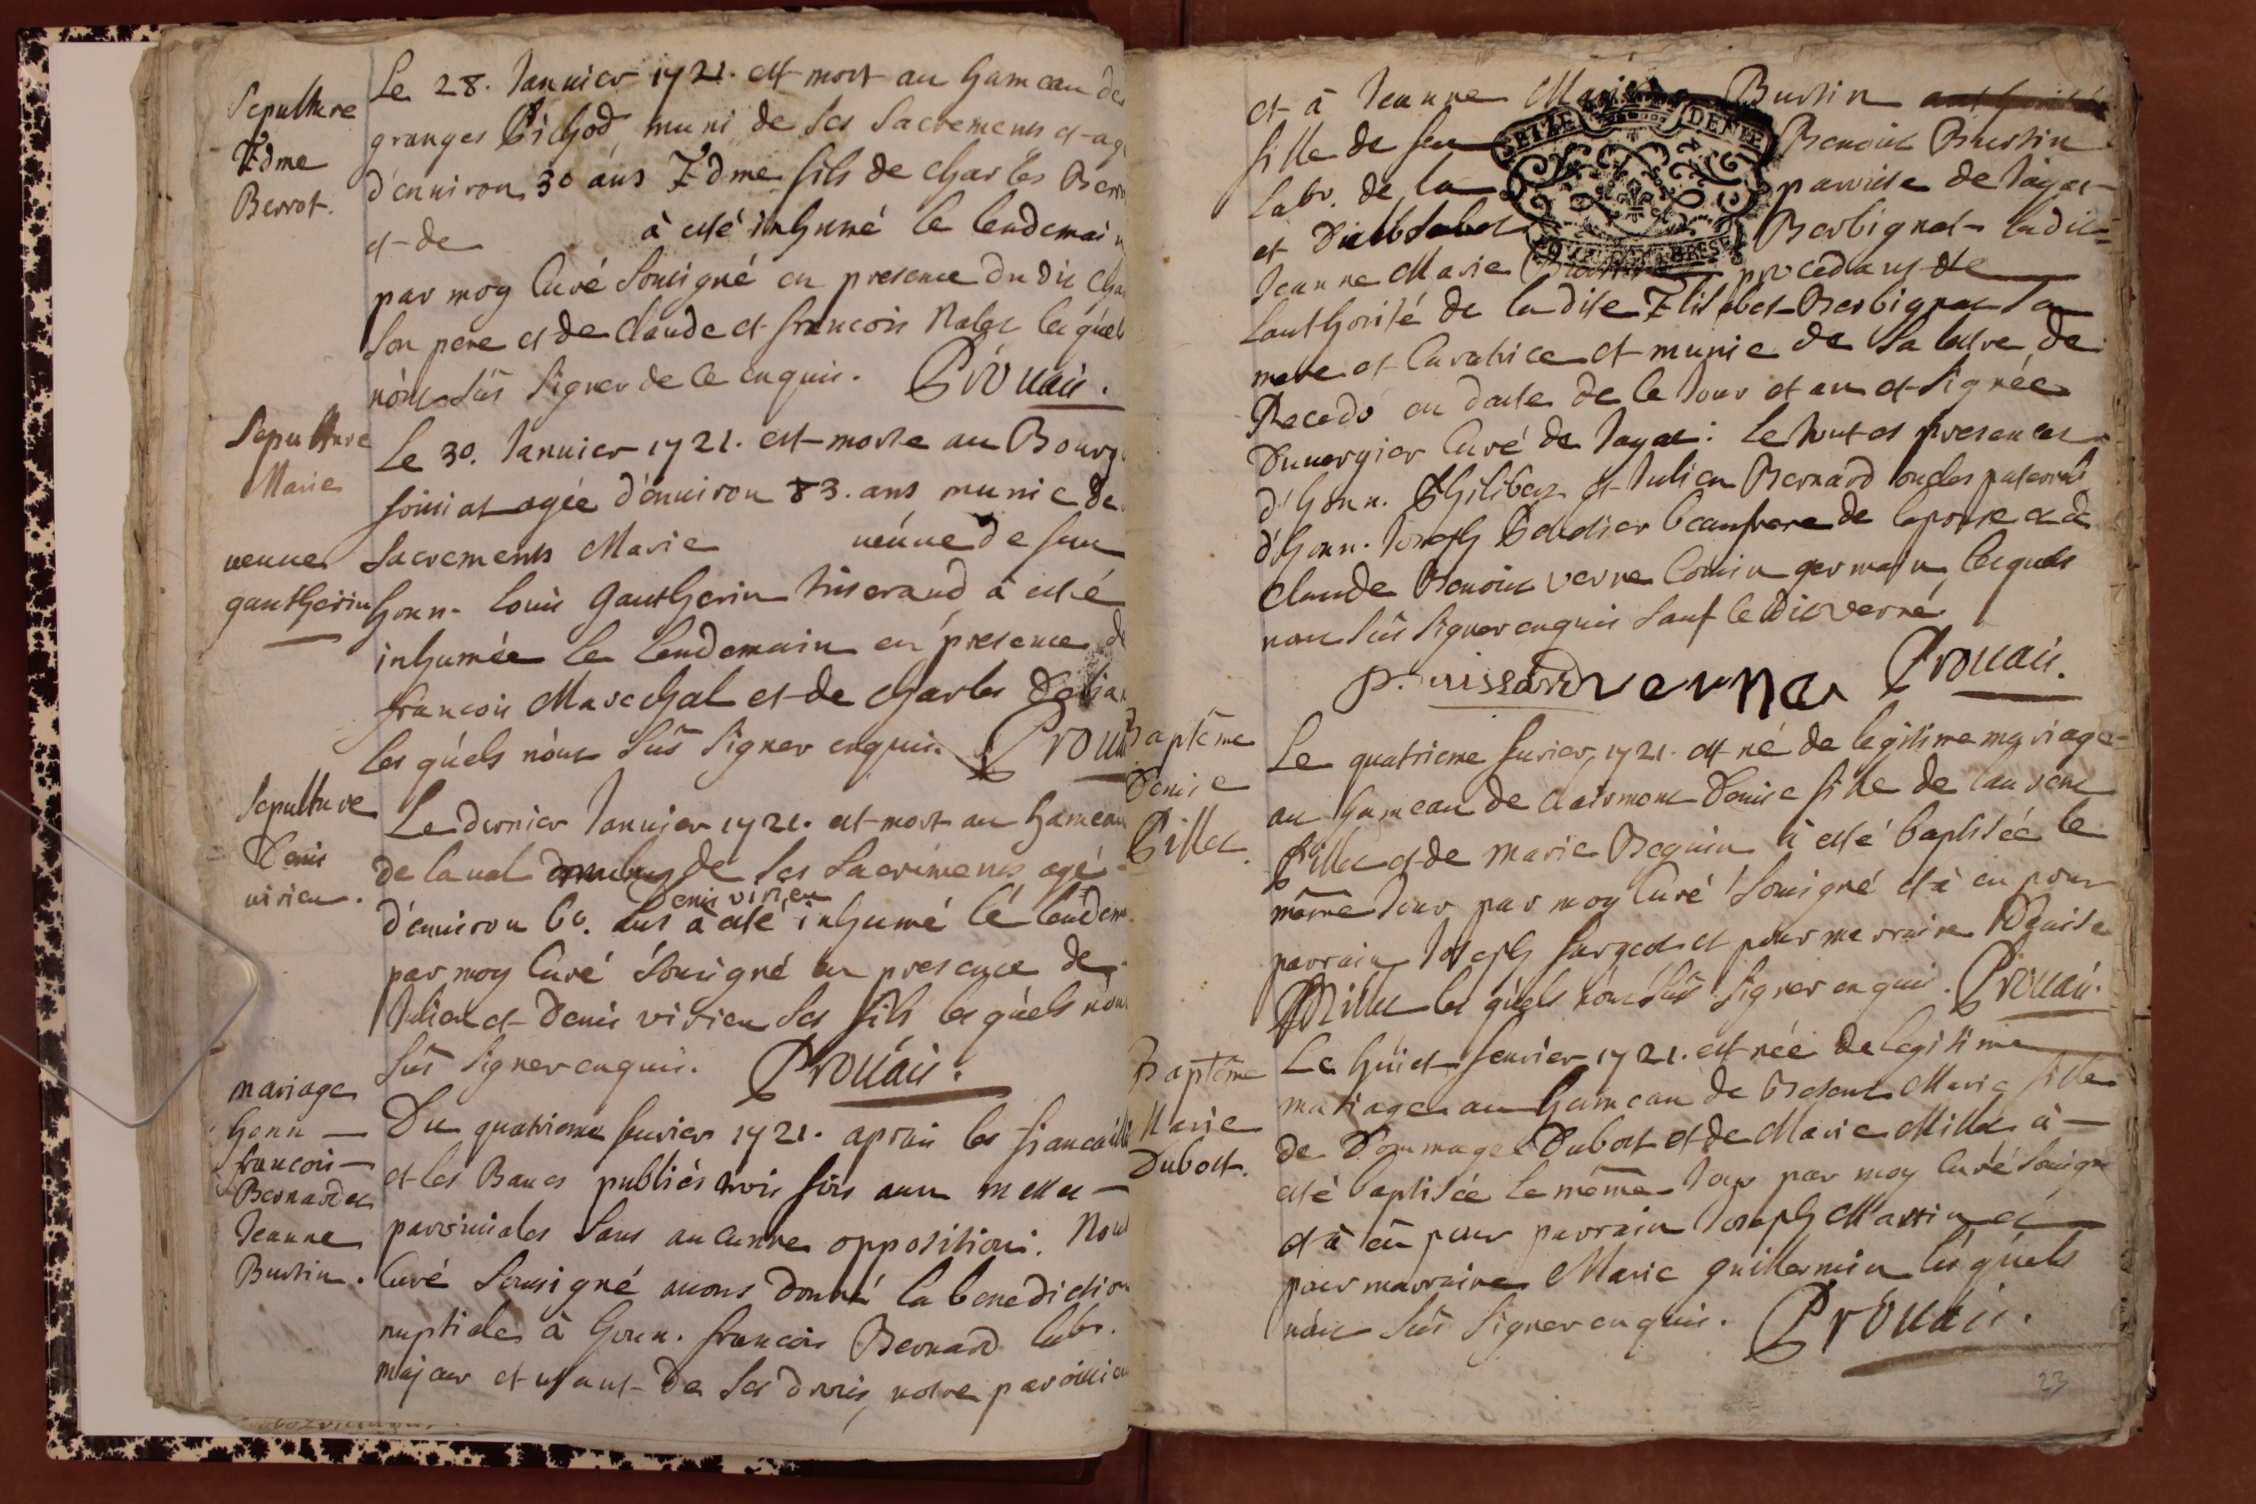 Sepulture
Edme
Berrot.
Le 28. Januier 1721. est mort au hameau des
granges Pichod, muni de ses sacrements et agé
d'enuiron 30 ans Edme fils de charles Berr
et de à esté inhumé le lendemain
par moy Curé sousigné en presence du dit Cha
son pere et de claude et francois Nalet lesquels
n'ont sçus signer de ce enquis. Prouais.
Sepulture
Marie
veuue
gautherin
Le 30. Januier 1721. est morte au Bourg
foissiat agée d'enuiron 83. ans munie de
sacrements Marie veuue de feu
honn. louis Gautherin tisserand à esté
inhumée le lendemain en presence de
francois Marechal et de charles
lesquels n'ont sçus signer enquis. Prouais
Sepulture
Denis
virieu.
Le dernier Januier 1721. est mort au hameau
de laual de ses sacrements agé
Denis virieu
d'enuiron 60. ans a esté inhumé le lendem
par moy Curé sousigné en presence de
Julien et Denis virieu ses fils lesquels n'ont
sçus signer enquis. Prouais.
mariage
honn
francois
Bernard et
Jeanne
Burtin.
Du quatrieme feurier 1721. aprais les fiancailles
et les Bancs publiés trois fois aux messes
parroissiales sans aucunne opposition. Nous
Curé sousigné auons donné la benediction
nuptiale à honn. francois Bernard labr.
majeur et usant de ses droits, notre paroissien
et à Jeanne Marie Burtin
fille de feu Benoist Burtin
labr. de la parroisse de Jayat
et d'Elisabet Berbignat ladite
Jeanne Marie procedant de
l'authorité de ladite Elisabet Berbignat sa
mere et Curatrice et munie de sa lettre de
Recedo en date de ce jour et an et signée
Duuergier Curé de Jayat: le tout es presences
d'honn. Philibert et Julien Bernard oncles paternels
d'honn. Joseph beaufrere de l'epouse et de
claude Benoist verne Cousin germain lesquels
n'ont sçus signer enquis sauf ledit verne
verne Prouais.
SEIZE DENIER
BOURG EN BRESSE
Baptême
Denise
Pillet.
Le quatrieme feurier, 1721. est né de legitime mariage
au hameau de clairmont Denise fille de laurent
Pillet et de marie Beguin à esté baptisée le
même jour par moy Curé sousigné et à eu pour
parrain Joseph fargeot et pour marraine Denise
Millet lesquels n'ont sçus signer enquis. Prouais.
Baptême
Marie
Dubost.
Le huict feurier 1721. est née de legitime
mariage au hameau de Besent Marie fille
de Dommage Dubost et de Marie Millet à
esté baptisée le même Jour par moy Curé sousigné
et à eu pour parrain Joseph Martin et
pour marraine Marie guillermin lesquels
n'ont sçus signer enquis. Prouais.
23